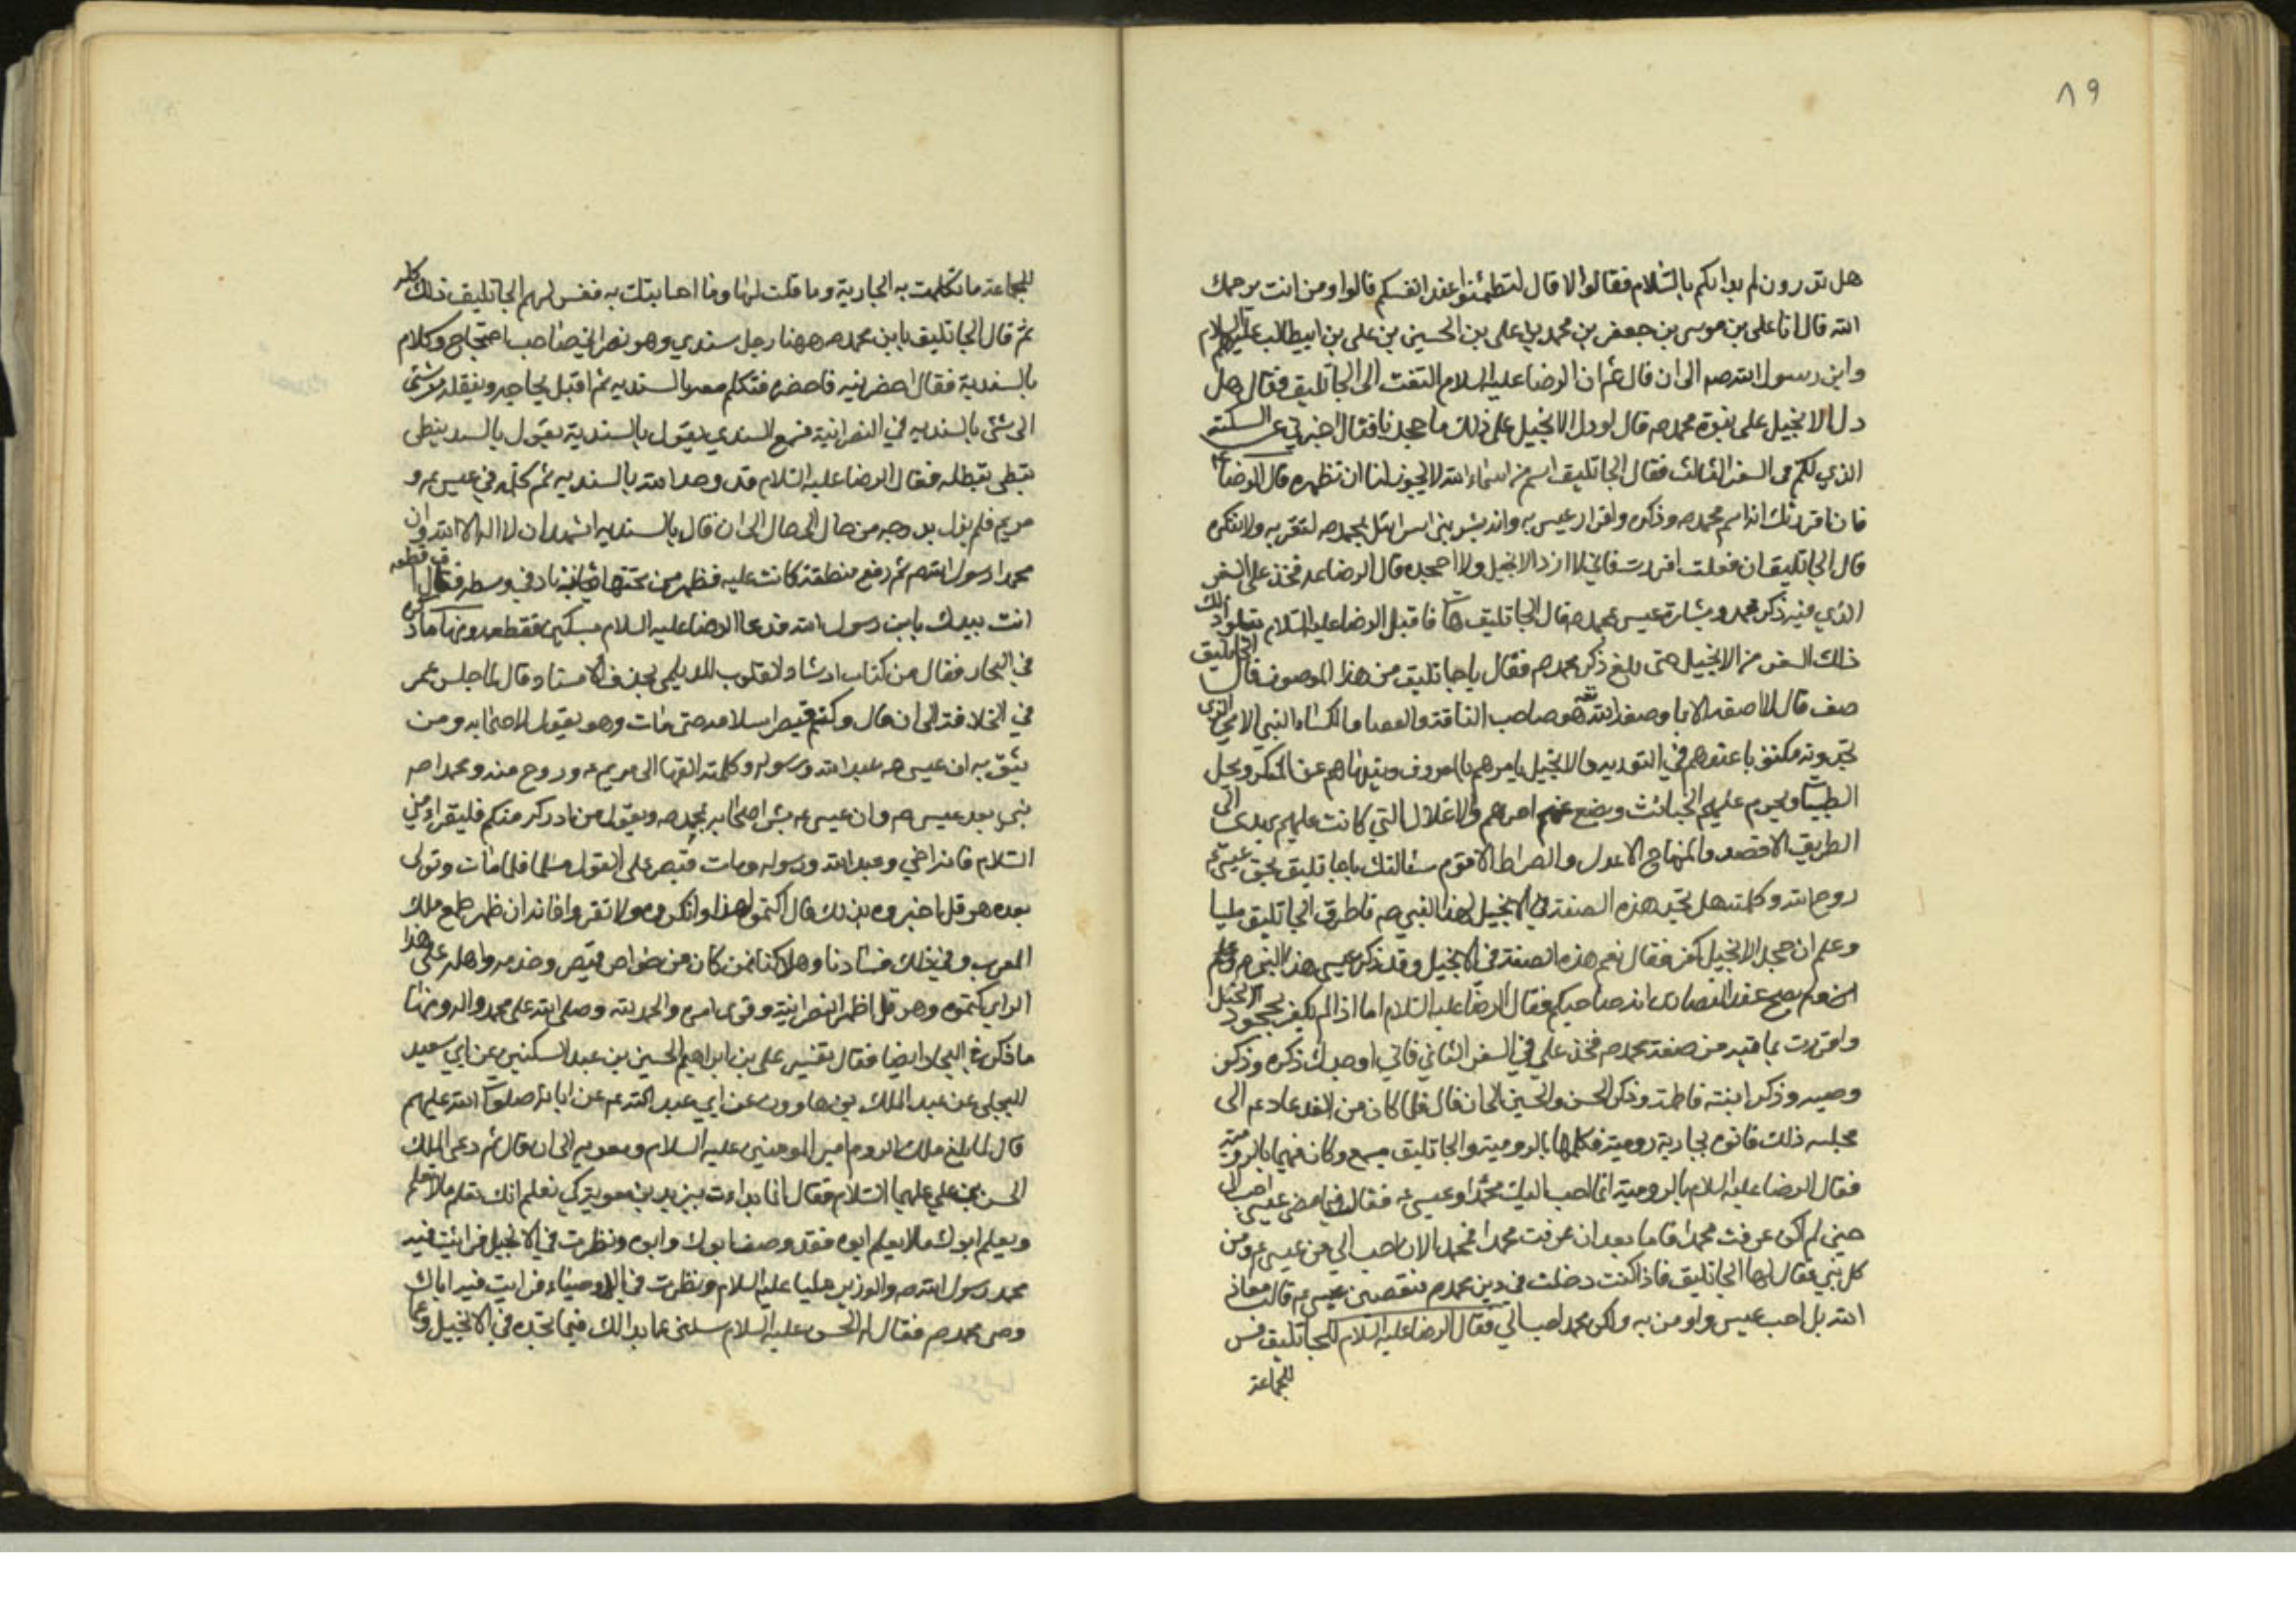 ٨٩
هل تدرون لم بدأتكم بالسلام فقالوا لا قال لتطمئنوا عند انفسكم قالوا ومن انت يرحمك
الله قال انا على بن موسى بن جعفر بن محمد بن على بن الحسين بن على بن ابيطالب عليهم السلام
وابن رسول الله صم الى ان قال ثم ان الرضا عليه السلام التفت الى الجاثليق فقال هل
دل الانجيل على نبوة محمد صم قال لو دل الانجيل على ذلك ما جحدنا فقال اخبرنى عن السكتة
الذي لكم فى السفر الثالث فقال الجاثليق اسم من اسماء الله لا يجوز لنا ان نظهره قال الرضا ع
فان اقررتك انه اسم محمد صم وذكره واقرار عيسى به وانه بشر بنى اسرائيل بمحمد صم لتقر به ولا تنكره
قال الجاثليق ان فعلت اقررت فانى لا ارد الانجيل ولا اجحده قال الرضا ع فخذ على السفر
الذي فيه ذكر محمد وبشارة عيسى بمحمد صم قال الجاثليق هات فاقبل الرضا عليه السلام يتلو ذلك
ذلك السفر من الانجيل حتى بلغ ذكر محمد صم فقال يا جاثليق من هذا الموصوف قال الجاثليق
صف قال لا اصفه الا بما وصفه الله تعه هو صاحب الناقة والعصا والكساء النبي الامي الذى
تجدونه مكتوبا عندهم في التورية والانجيل يامرهم بالمعروف وينهاهم عن المنكر ويحل
الطيبات ويحرم عليهم الخبائث ويضع عنهم اصرهم والاغلال التي كانت عليهم يهدى الى
الطريق الاقصد والمنهاج الاعدل والصراط الاقوم سئالتك يا جاثليق بحق عيسى ع
روح الله وكلمته هل تجد هذه الصفة في الانجيل لهذا النبي صم فاطرق الجاثليق مليا
وعلم ان جحد الانجيل كفر فقال نعم هذه الصفة في الانجيل وقد ذكر عيسى هذا النبي صم ولم
يصح عند النصارى انه صاحبكم فقال الرضا عليه السلام اما اذا لم تكفر بجحود الانجيل
واقررت بما فيه من صفة محمد صم فخذ علي في السفر الثاني فاني اوجدك ذكره وذكر
وصيه وذكر ابنته فاطمة وذكر الحسن والحسين الى ان قال فلما كان من الغد عاد عم الى
مجلسه ذلك فاتوه بجارية رومية فكلمها بالرومية والجاثليق يسمع وكان فهيما بالرومية
فقال الرضا عليه السلام بالرومية ايما احب اليك محمد او عيسى ع فقالت فيما مضى عيسى احب الى
حين لم اكن عرفت محمدا فاما بعد ان عرفت محمدا فمحمد الان احب الي من عيسى ع ومن
كل نبي فقال لها الجاثليق فاذا كنت دخلت في دين محمد صم فتبغضين عيسى ع قالت معاذ
الله بل احب عيسى واومن به ولكن محمد احب الي فقال الرضا عليه السلام للجاثليق فسر
للجماعة
للجماعة ما تكلمت به الجارية وما قلت لها وما اجابتك به ففسر لهم الجاثليق ذلك كله
ثم قال الجاثليق يا بن محمد صم ههنا رجل سندي وهو نصراني صاحب احتجاج وكلام
بالسندية فقال احضرنيه فاحضره فتكلم معه بالسندية ثم اقبل يحاجه وينقله من شئ
الى شئ بالسندية في النصرانية فسمع السندي يقول بالسندية يقول بالسند ينطى
نبطى نبطله فقال الرضا عليه السلام قد وحد الله بالسندية ثم كلمه في عيسى ع و
مريم فلم يزل يدرجه من حال الى حال الى ان قال بالسندية اشهد ان لا اله الا الله وان
محمدا رسول الله صم ثم رفع منطقة كانت عليه فظهر من تحتها زنار في وسطه فقال اقطعه
انت بيدك يا بن رسول الله فدعا الرضا عليه السلام بسكين فقطعه ومنها ما ذكره
في البحار فقال من كتاب ارشاد القلوب للديلمى بحذف الاسناد قال لما جلس عمر
في الخلافة الى ان قال وكتم قيصر اسلامه حتى مات وهو يقول لاصحابه ومن
يثق به ان عيسى ع عبد الله ورسوله وكلمته القيها الى مريم ع وروح منه ومحمدا صم
نبى بعد عيسى ع وان عيسى ع بشر اصحابه بمحمد صم ويقول من ادركه منكم فليقرئه مني
السلام فانه اخي وعبد الله ورسوله ومات قيصر على القول مسلما فلما مات وتولى
بعده هرقل اخبروه بذلك قال اكتموا هذا وانكروه ولا تقروا فانه ان ظهر طمع ملك
العرب وفي ذلك فسادنا وهلاكنا فمن كان من خواص قيصر وخدمه واهله على هذا
الراي كتموه وهرقل اظهر النصرانية وقوى امره والحمد لله وصلى الله على محمد واله ومنها
ما ذكره في البحار ايضا فقال تفسير على بن ابراهيم الحسين بن عبد السكنين عن ابي سعيد
البجلى عن عبد الملك بن هارون عن ابي عبد الله ع عن ابائه صلوات الله عليهم
قال لما بلغ ملك الروم امير المومنين عليه السلام ومعوية الى ان قال ثم دعى الملك
الحسن بن علي عليهما السلام فقال انما بدات بيزيد بن معوية كي يعلم انك تعلم ما لا يعلم
ويعلم ابوك ما لا يعلم ابوه فقد وصف ابوك وابوه ونظرت في الانجيل فرايت فيه
محمد رسول الله صم والوزير عليا عليه السلام ونظرت في الاوصياء فرايت فيه اباك
وصى محمد صم فقال له الحسن عليه السلام سلنى عما بدا لك فيما تجده في الانجيل وعما